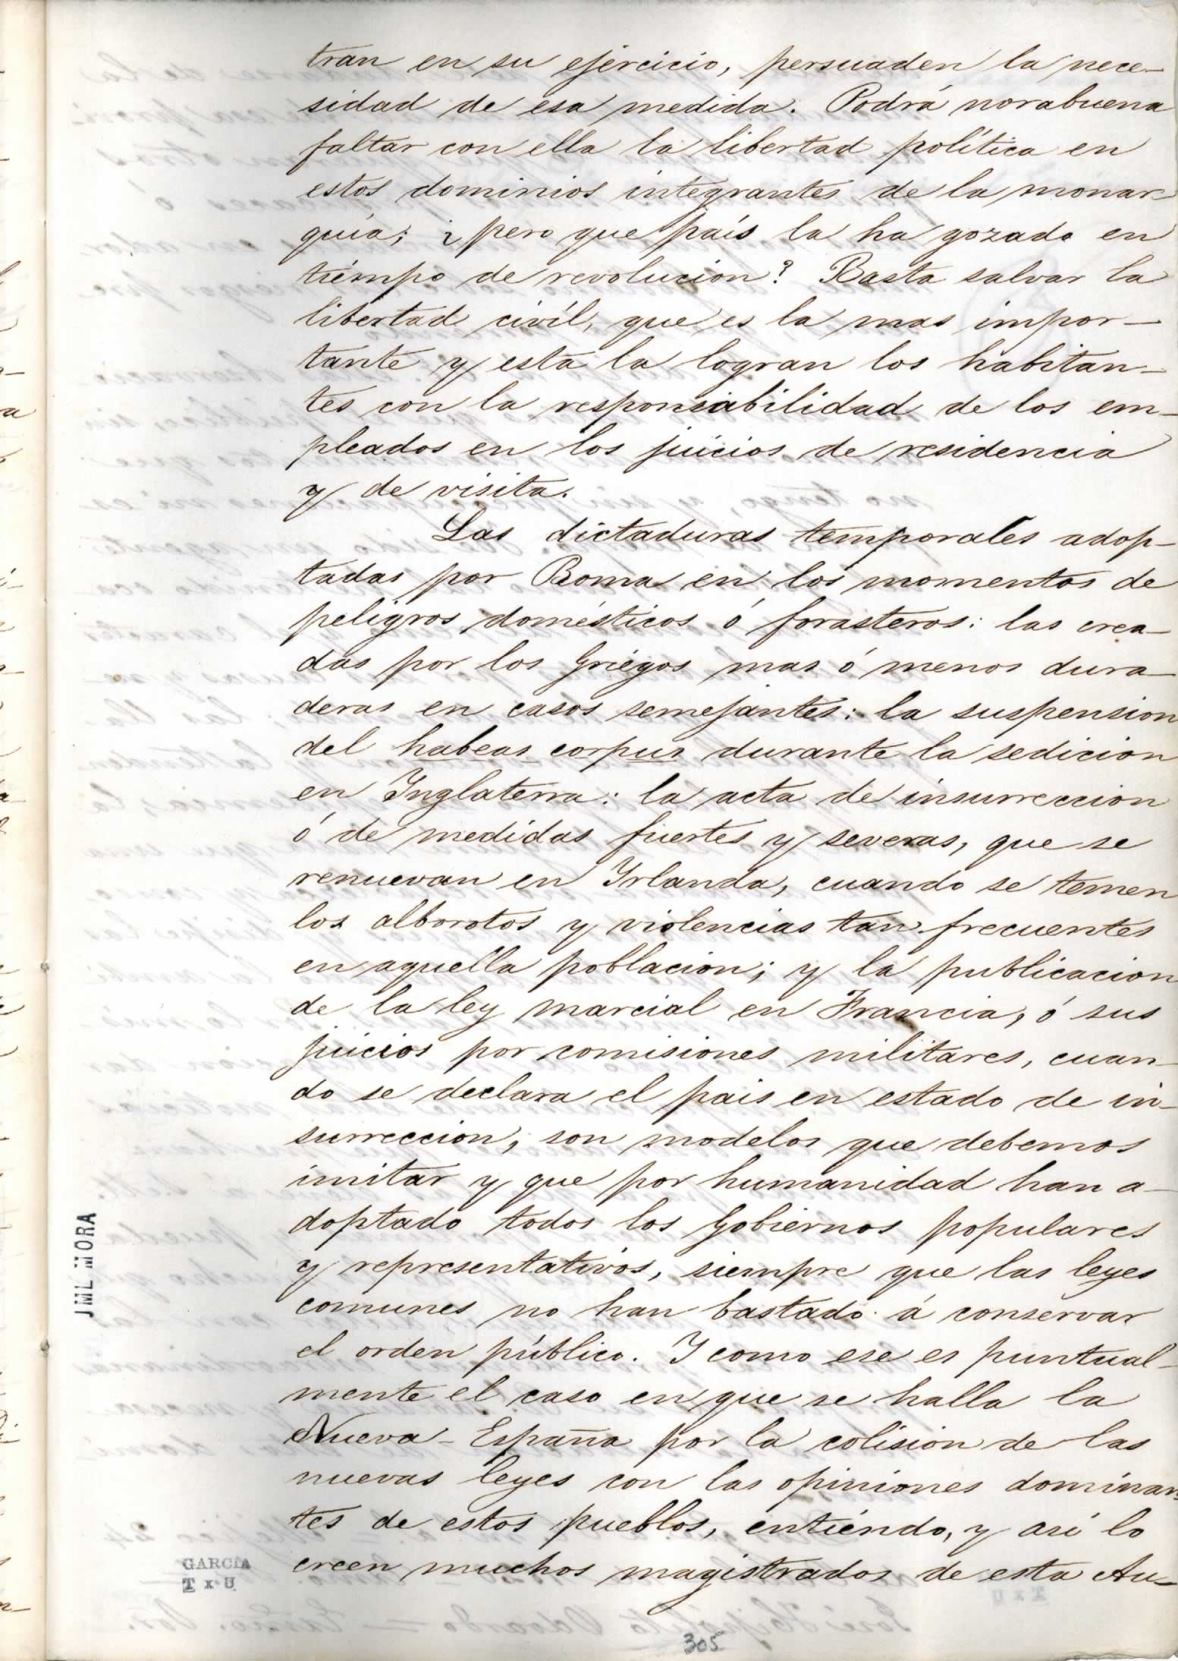 tran en su ejercicio, persuaden la nece-
sidad de esa medida. Podrá norabuena
faltar con ella la libertad política en
estos dominios integrantes de la monar-
quía; ¿pero que país la ha gozado en
tiempo de revolucion? Basta salvar la
libertad civíl, que es la mas impor-
tante y esta la logran los habitan-
tes con la responsabilidad de los em-
pleados en los juicios de residencia
y de visita.
Las dictaduras temporales adop-
tadas por Roma en los momentos de
peligros domésticos ó forasteros: las crea-
das por los Griegos mas ó menos dura-
deras en casos semejantes: la suspension
del habeas corpus durante la sedicion
en Inglaterra: la acta de insurreccion
ó de medidas fuertes y severas, que se
renuevan en Yrlanda, cuando se temen
los alborotos y violencias tan frecuentes
en aquella poblacion; y la publicacion
de la ley marcial en Francia, ó sus
juicios por comisiones militares, cuan-
do se declara el pais en estado de in-
surreccion, son modelos que debemos
imitar y que por humanidad han a-
doptado todos los Gobiernos populares
y representativos, siempre que las leyes
comunes no han bastado á conservar
el orden público. I como ese es puntual-
mente el caso en que se halla la
Nueva-España por la colision de las
nuevas leyes con las opiniones dominan-
tes de estos pueblos, entiendo, y así lo
creen muchos magistrados de esta Au-
JML MORA
GARCÍA
T x U
305